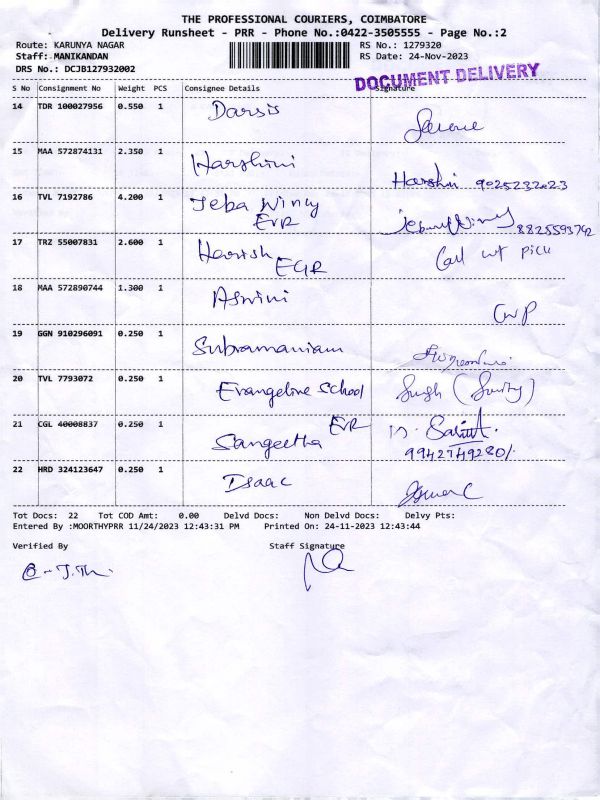 THE PROFESSIONAL COURIERS, COIMBATORE
Delivery Runsheet - PRR - Phone No.:0422-3505555 - Page No.:2
Route: KARUNYA NAGAR RS No.: 1279320
Staff: MANIKANDAN RS Date: 24-Nov-2023
DRS No.: DCJB127932002
DOCUMENT DELIVERY
S No Consignment No Weight PCS Consignee Details Signature
14 TDR 100027956 0.550 1 Darsis
15 MAA 572874131 2.350 1 Harshini
Harshni 9025232023
16 TVL 7192786 4.200 1 Jeba Wincy
EVR
8825593742
17 TRZ 55007831 2.600 1 Harish
EGR
Call wt pick
18 MAA 572890744 1.300 1 Aswini
CWP
19 GGN 910296091 0.250 1 Subramaniam
20 TVL 7793072 0.250 1 Evangeline School
21 CGL 40008837 0.250 1 EVR
Sangeetha
9942749280/
22 HRD 324123647 0.250 1 Isaac
Tot Docs: 22 Tot COD Amt: 0.00 Delvd Docs: Non Delvd Docs: Delvy Pts:
Entered By :MOORTHYPRR 11/24/2023 12:43:31 PM Printed On: 24-11-2023 12:43:44
Verified By Staff Signature